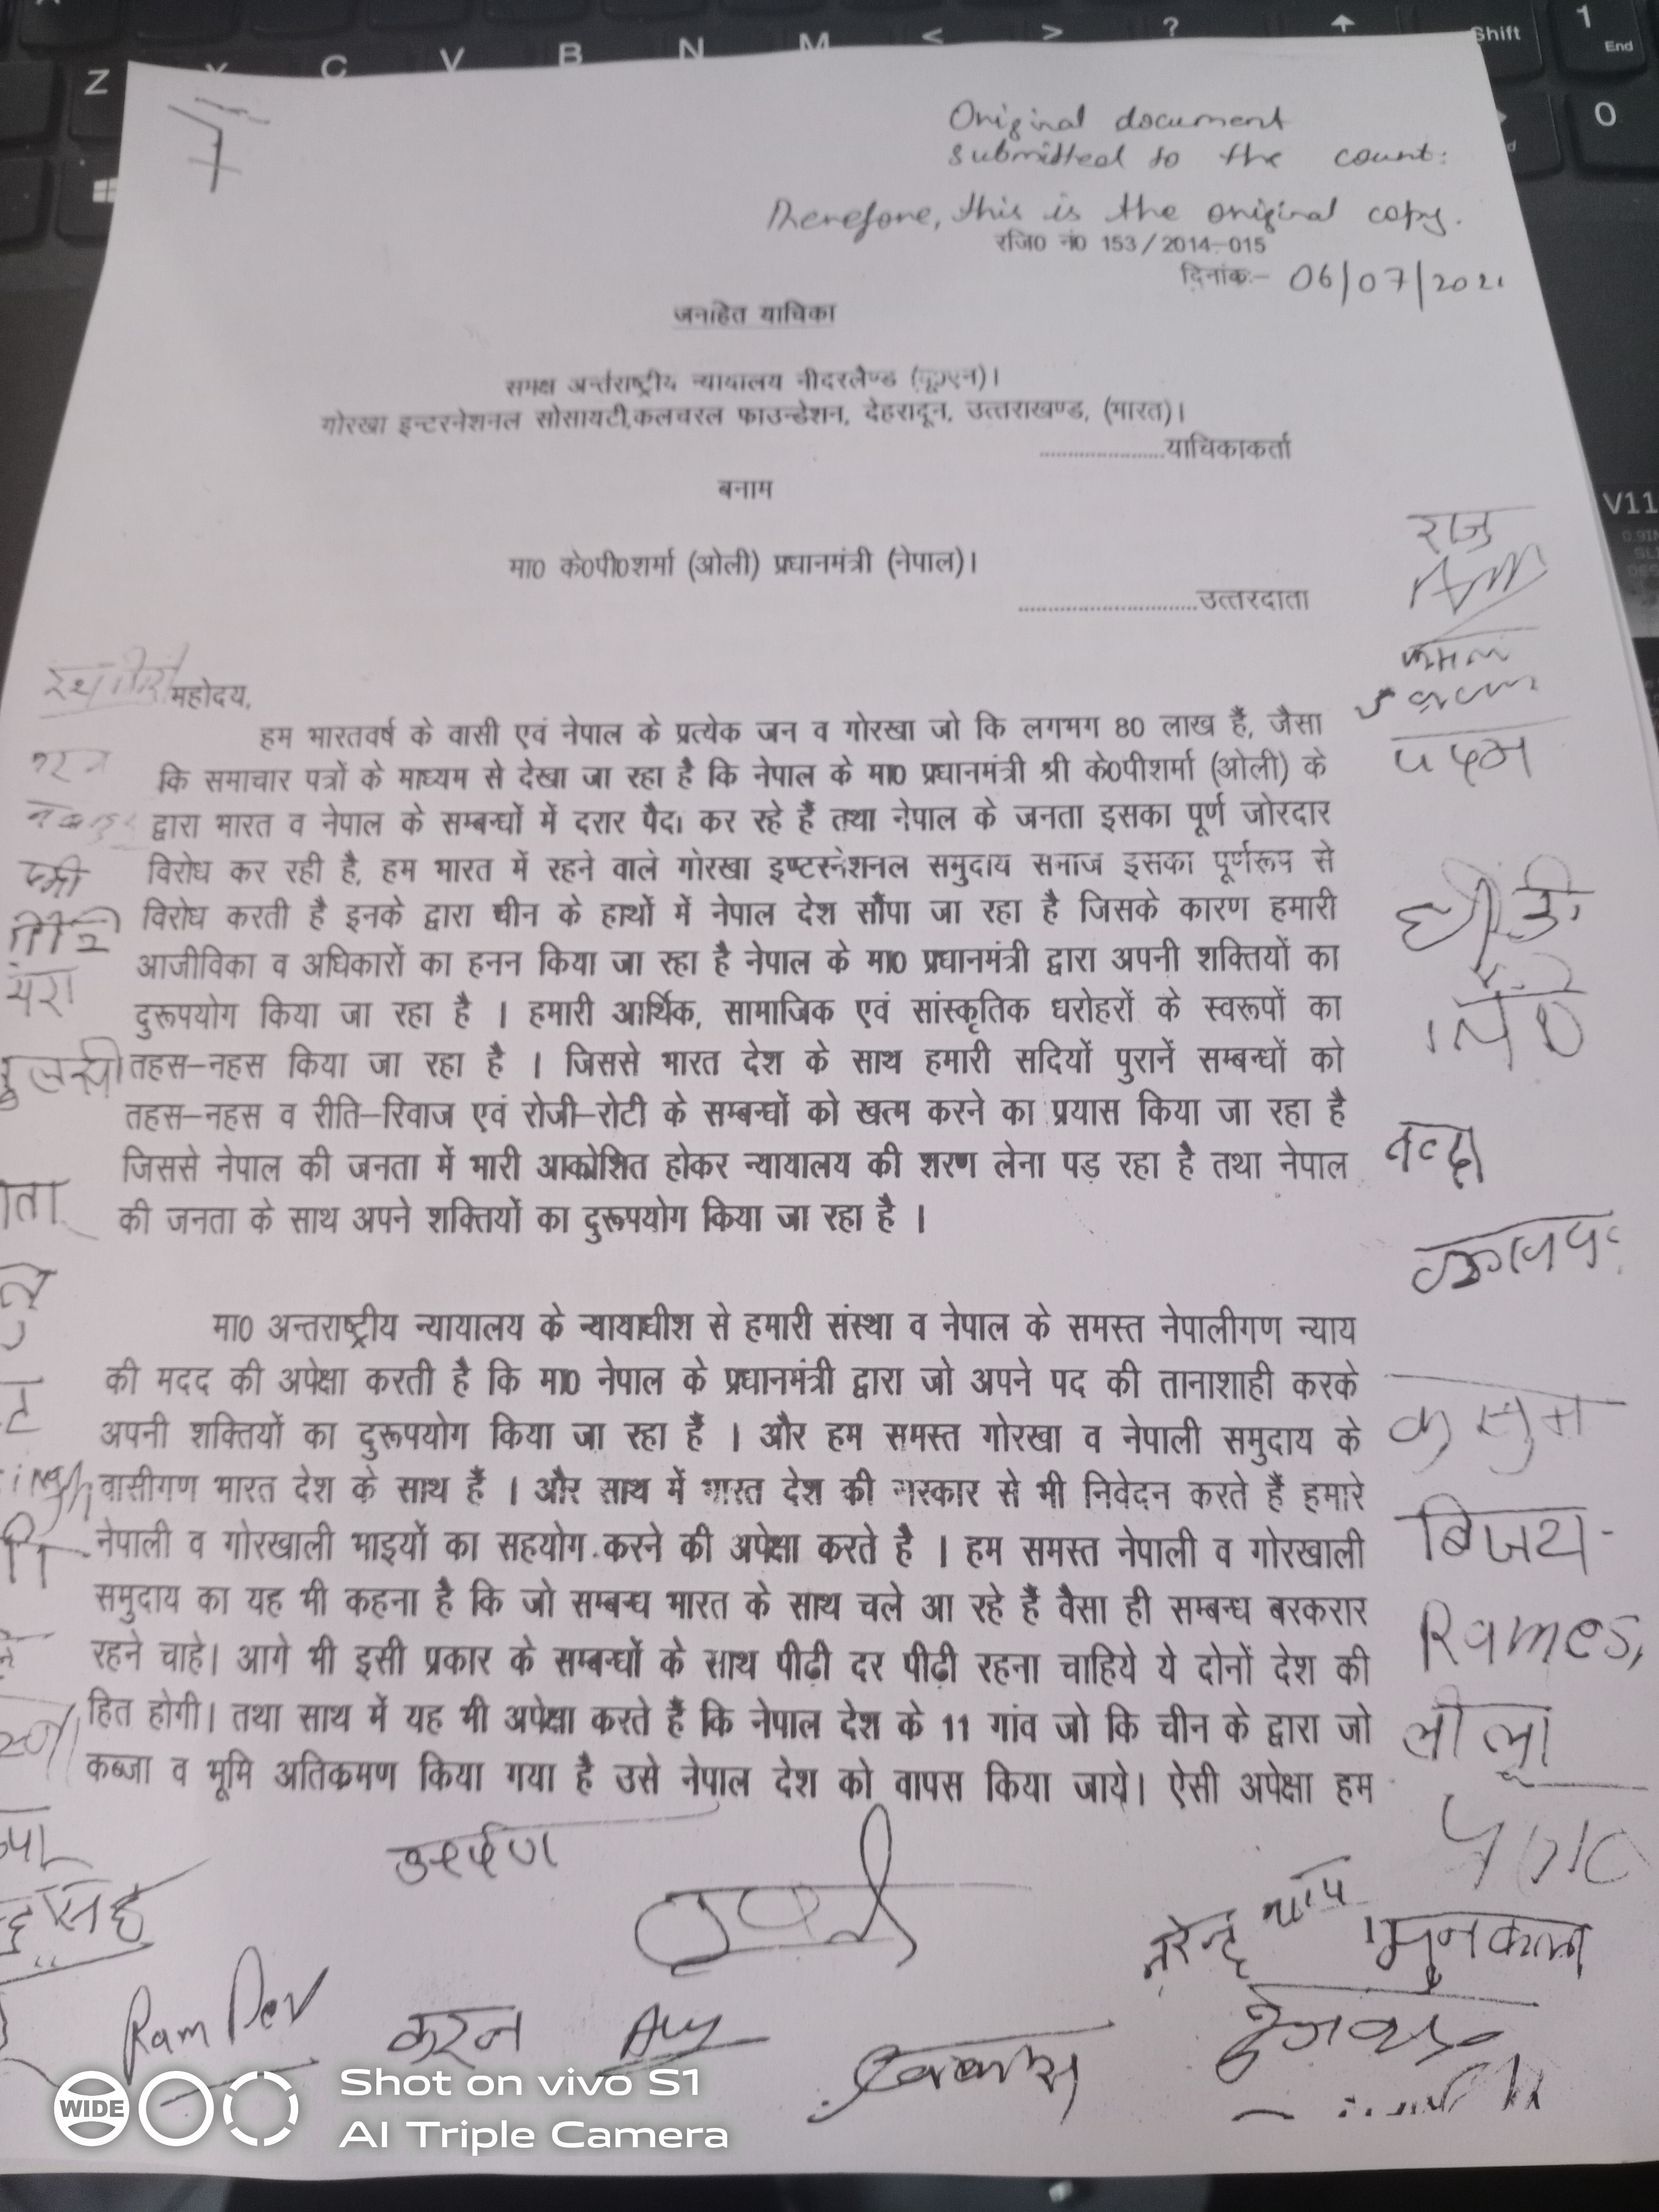 Z X C V B N M < > ? Shift 1 End
0
Original document
submitted to the court.
Therefore, this is the original copy.
रजि0 नं0 153/2014-015
दिनांक:- 06/07/2021
जनहित याचिका
समक्ष अर्न्तराष्ट्रीय न्यायालय नीदरलैण्ड (यूएन)।
गोरखा इन्टरनेशनल सोसायटी,कलचरल फाउन्डेशन, देहरादून, उत्तराखण्ड, (भारत)।
......................याचिकाकर्ता
बनाम
V11
मा0 के0पी0शर्मा (ओली) प्रधानमंत्री (नेपाल)।
...............................उत्तरदाता
राजु
कमल
महोदय,
हम भारतवर्ष के वासी एवं नेपाल के प्रत्येक जन व गोरखा जो कि लगभग 80 लाख हैं, जैसा
कि समाचार पत्रों के माध्यम से देखा जा रहा है कि नेपाल के मा0 प्रधानमंत्री श्री के0पीशर्मा (ओली) के
पदम
द्वारा भारत व नेपाल के सम्बन्धों में दरार पैदा कर रहे हैं तथा नेपाल के जनता इसका पूर्ण जोरदार
विरोध कर रही है, हम भारत में रहने वाले गोरखा इण्टरनेशनल समुदाय समाज इसका पूर्णरूप से
विरोध करती है इनके द्वारा चीन के हाथों में नेपाल देश सौंपा जा रहा है जिसके कारण हमारी
आजीविका व अधिकारों का हनन किया जा रहा है नेपाल के मा0 प्रधानमंत्री द्वारा अपनी शक्तियों का
दुरूपयोग किया जा रहा है । हमारी आर्थिक, सामाजिक एवं सांस्कृतिक धरोहरों के स्वरूपों का
तहस-नहस किया जा रहा है । जिससे भारत देश के साथ हमारी सदियों पुरानें सम्बन्धों को
तहस-नहस व रीति-रिवाज एवं रोजी-रोटी के सम्बन्धों को खत्म करने का प्रयास किया जा रहा है
जिससे नेपाल की जनता में भारी आक्रोशित होकर न्यायालय की शरण लेना पड़ रहा है तथा नेपाल
की जनता के साथ अपने शक्तियों का दुरूपयोग किया जा रहा है ।
मा0 अन्तराष्ट्रीय न्यायालय के न्यायाधीश से हमारी संस्था व नेपाल के समस्त नेपालीगण न्याय
की मदद की अपेक्षा करती है कि मा0 नेपाल के प्रधानमंत्री द्वारा जो अपने पद की तानाशाही करके
अपनी शक्तियों का दुरूपयोग किया जा रहा हैं । और हम समस्त गोरखा व नेपाली समुदाय के
कुसुम
वासीगण भारत देश के साथ हैं । और साथ में भारत देश की सरकार से भी निवेदन करते हैं हमारे
नेपाली व गोरखाली भाइयों का सहयोग करने की अपेक्षा करते है । हम समस्त नेपाली व गोरखाली
बिजय
समुदाय का यह भी कहना है कि जो सम्बन्ध भारत के साथ चले आ रहे हैं वैसा ही सम्बन्ध बरकरार
रहने चाहे। आगे भी इसी प्रकार के सम्बन्धों के साथ पीढ़ी दर पीढ़ी रहना चाहिये ये दोनों देश की
Rames
हित होगी। तथा साथ में यह भी अपेक्षा करते हैं कि नेपाल देश के 11 गांव जो कि चीन के द्वारा जो
कब्जा व भूमि अतिक्रमण किया गया है उसे नेपाल देश को वापस किया जाये। ऐसी अपेक्षा हम
Ram Dev
करन
WIDE
Shot on vivo S1
AI Triple Camera